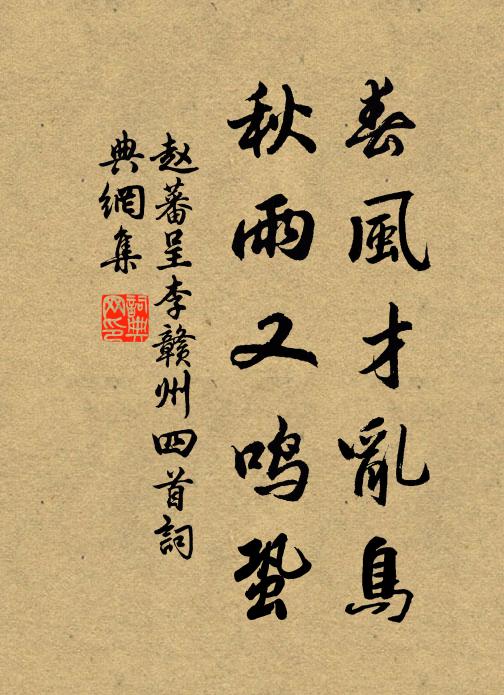 春風才亂鳥
秋雨又鸣蛩
赵蕃呈李赣州四首詞
典網集
詞典
网印